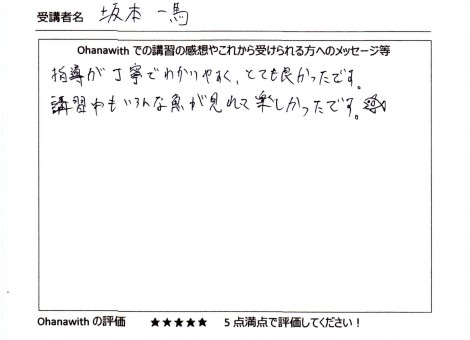 受講者名 坂本 一馬
Ohanawith での講習の感想やこれから受けられる方へのメッセージ等
指導が丁寧でわかりやすく、とても良かったです。
講習中もいろんな魚が見れて楽しかったです。
Ohanawith の評価 ★★★★★ 5点満点で評価してください！